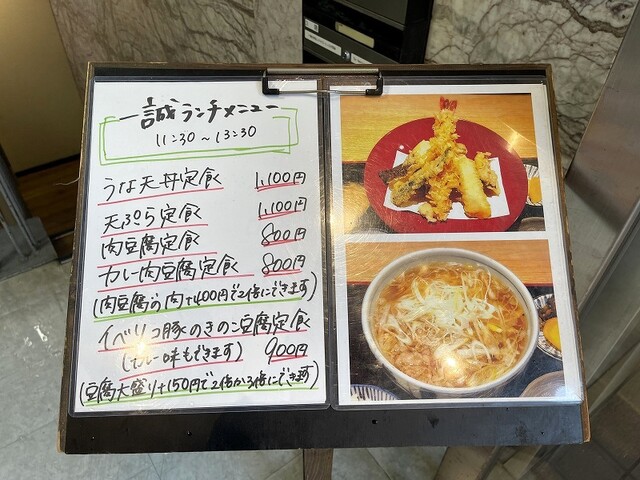 一誠ランチメニュー
11:30～13:30
うな天丼定食 1,100円
天ぷら定食 1,100円
肉豆腐定食 800円
カレー肉豆腐定食 800円
(肉豆腐の肉+400円で2倍にできます)
イベリコ豚のきのこ豆腐定食
(カレー味もできます) 900円
(豆腐大盛り+150円で2倍か3倍にできます)